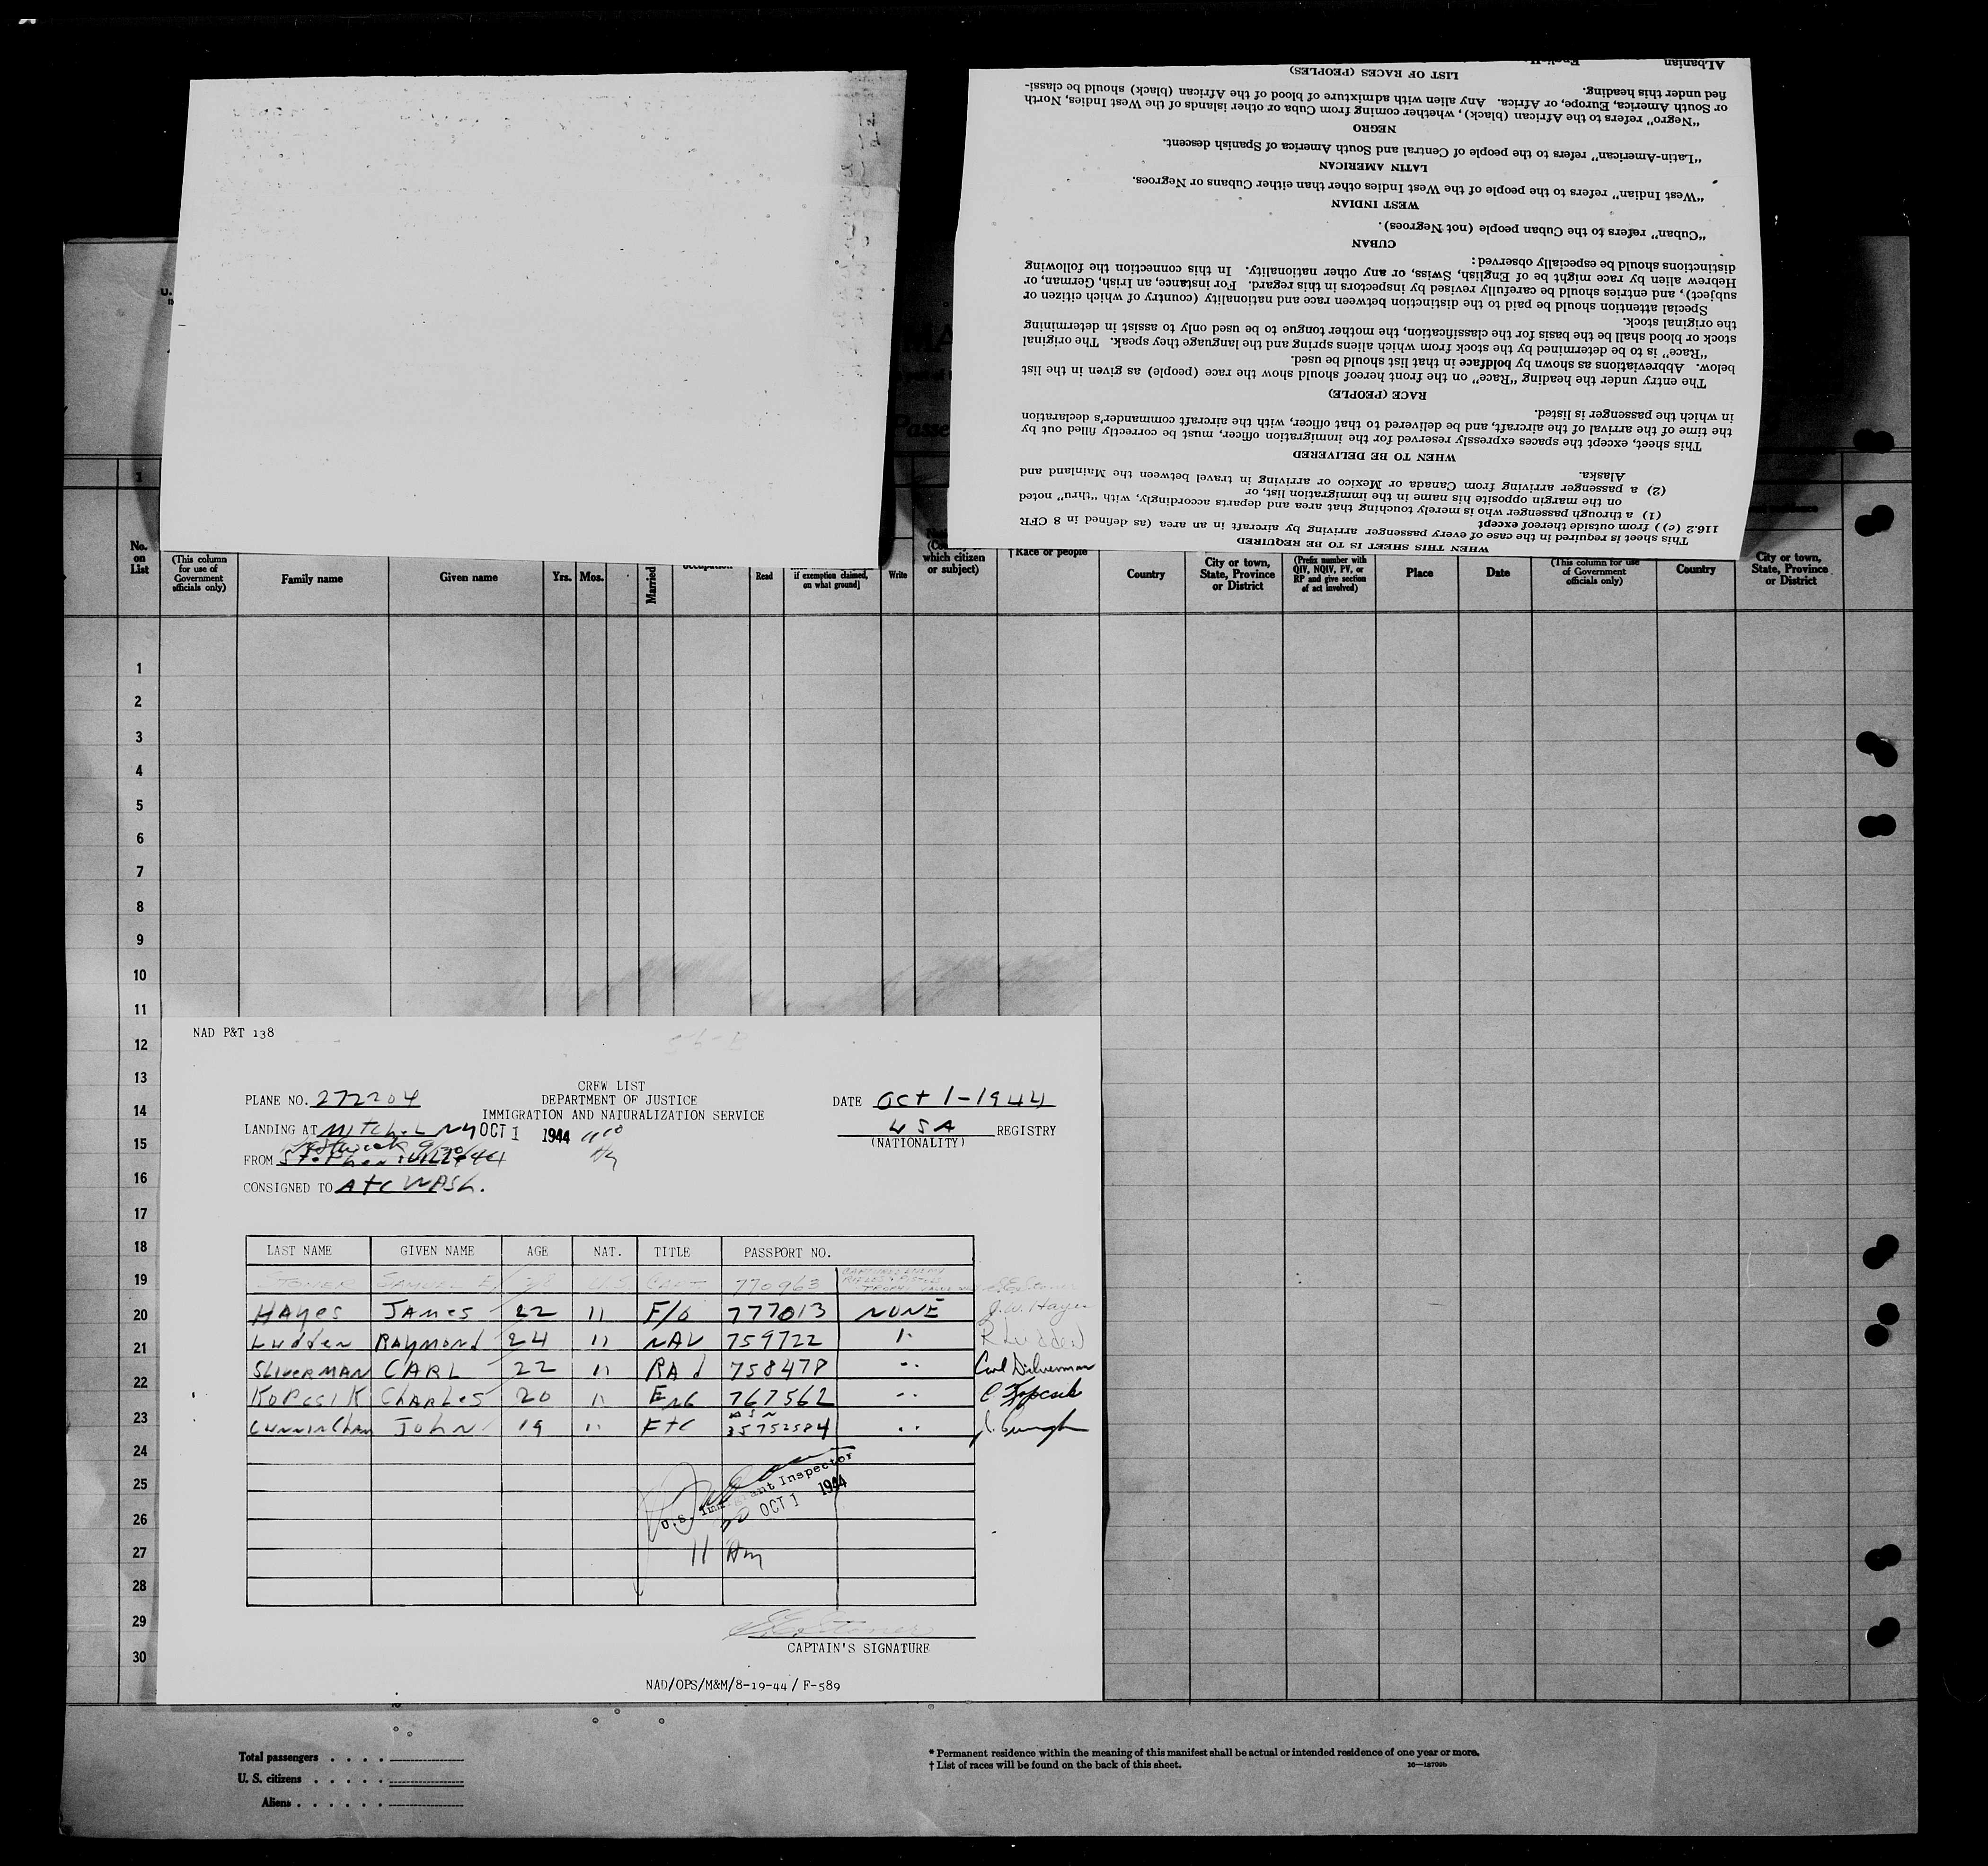 LIST OF RACES (PEOPLES)
Albanian
WHEN THIS SHEET IS TO BE REQUIRED
This sheet is required in the case of every passenger arriving by aircraft in an area (as defined in 8 CFR
116.2 (c)) from outside thereof except
(1) a through passenger who is merely touching that area and departs accordingly, with "thru" noted
on the margin opposite his name in the immigration list, or
(2) a passenger arriving from Canada or Mexico or arriving in travel between the Mainland and
Alaska.
WHEN TO BE DELIVERED
This sheet, except the spaces expressly reserved for the immigration officer, must be correctly filled out by
the time of the arrival of the aircraft, and be delivered to that officer, with the aircraft commander's declaration
in which the passenger is listed.
RACE (PEOPLE)
The entry under the heading "Race" on the front hereof should show the race (people) as given in the list
below. Abbreviations as shown by boldface in that list should be used.
"Race" is to be determined by the stock from which aliens spring and the language they speak. The original
stock or blood shall be the basis for the classification, the mother tongue to be used only to assist in determining
the original stock.
Special attention should be paid to the distinction between race and nationality (country of which citizen or
subject), and entries should be carefully revised by inspectors in this regard. For instance, an Irish, German, or
Hebrew alien by race might be of English, Swiss, or any other nationality. In this connection the following
distinctions should be especially observed:
CUBAN
"Cuban" refers to the Cuban people (not Negroes).
WEST INDIAN
"West Indian" refers to the people of the West Indies other than either Cubans or Negroes.
LATIN AMERICAN
"Latin-American" refers to the people of Central and South America of Spanish descent.
NEGRO
"Negro" refers to the African (black), whether coming from Cuba or other islands of the West Indies, North
or South America, Europe, or Africa. Any alien with admixture of blood of the African (black) should be classi-
fied under this heading.
1
No. on List
(This column for use of Government officials only)
Family name
Given name
Yrs.
Mos.
Married
Read
if exemption claimed, on what ground]
Write
which citizen or subject)
† Race or people
Country
City or town, State, Province or District
(Prefix number with QIV, NQIV, PV, or RP and give section of act involved)
Place
Date
(This column for use of Government officials only)
Country
City or town, State, Province or District
1
2
3
4
5
6
7
8
9
10
11
12
13
14
15
16
17
18
19
20
21
22
23
24
25
26
27
28
29
30
NAD P&T 138
CREW LIST
PLANE NO. 272204 DEPARTMENT OF JUSTICE DATE Oct 1-1944
IMMIGRATION AND NATURALIZATION SERVICE
LANDING AT Mitchel NY OCT 1 1944 USA REGISTRY
(NATIONALITY)
FROM
CONSIGNED TO Atc WASh.
LAST NAME GIVEN NAME AGE NAT. TITLE PASSPORT NO.
STONER SAMUEL E U.S. CAPT 770963
HAyes JAmes 22 11 F/O 777013 NONE J.W. Hayes
Ludden Raymond 24 11 NAV 759722 R Ludden
SLIVERMAN CARL 22 11 RAd 758478 Carl Silverman
KOPCSIK CHARLES 20 11 ENG 767562 C Kopcsik
CunninCham John 19 11 FTC ASN 35752584
U.S. Immigrant Inspector
OCT 1 1944
11 Am
S.E. Stoner
CAPTAIN'S SIGNATURE
NAD/OPS/M&M/8-19-44/ F-589
Total passengers . . . .
U. S. citizens . . . . .
Aliens . . . . . .
* Permanent residence within the meaning of this manifest shall be actual or intended residence of one year or more.
† List of races will be found on the back of this sheet.